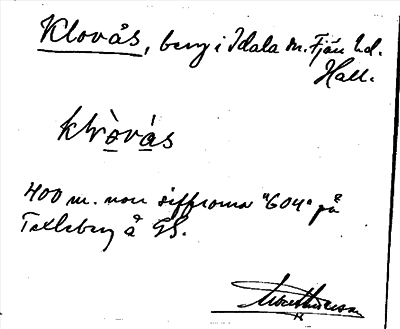 Klovås, berg i Idala sn. Fjäre hd.
Hall.
klòvàs
400 m. nor siffrorna "604" på
Taxleberg å GS.